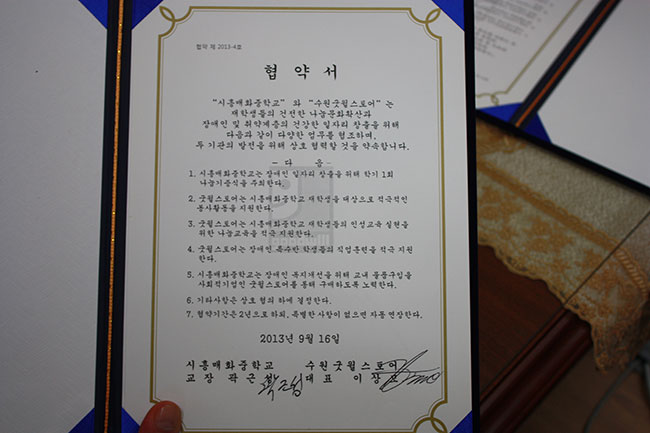 협약 제 2013-4호
협 약 서
"시흥매화중학교" 와 "수원굿윌스토어" 는
재학생들의 건전한 나눔문화확산과
장애인 및 취약계층의 건강한 일자리 창출을 위해
다음과 같이 다양한 업무를 협조하며,
두 기관의 발전을 위해 상호 협력할 것을 약속합니다.
- 다 음 -
1. 시흥매화중학교는 장애인 일자리 창출을 위해 학기 1회
나눔기증식을 주최한다.
2. 굿윌스토어는 시흥매화중학교 재학생을 대상으로 적극적인
봉사활동을 지원한다.
3. 굿윌스토어는 시흥매화중학교 재학생들의 인성교육 실현을
위한 나눔교육을 적극 지원한다.
4. 굿윌스토어는 장애인 특수반 학생들의 직업훈련을 적극 지원
한다.
5. 시흥매화중학교는 장애인 복지개선을 위해 교내 물품구입을
사회적기업인 굿윌스토어를 통해 구매하도록 노력한다.
6. 기타사항은 상호 협의 하에 결정한다.
7. 협약기간은 2년으로 하되, 특별한 사항이 없으면 자동 연장한다.
2013년 9월 16일
시흥매화중학교 수원굿윌스토어
교장 곽근 대표 이창